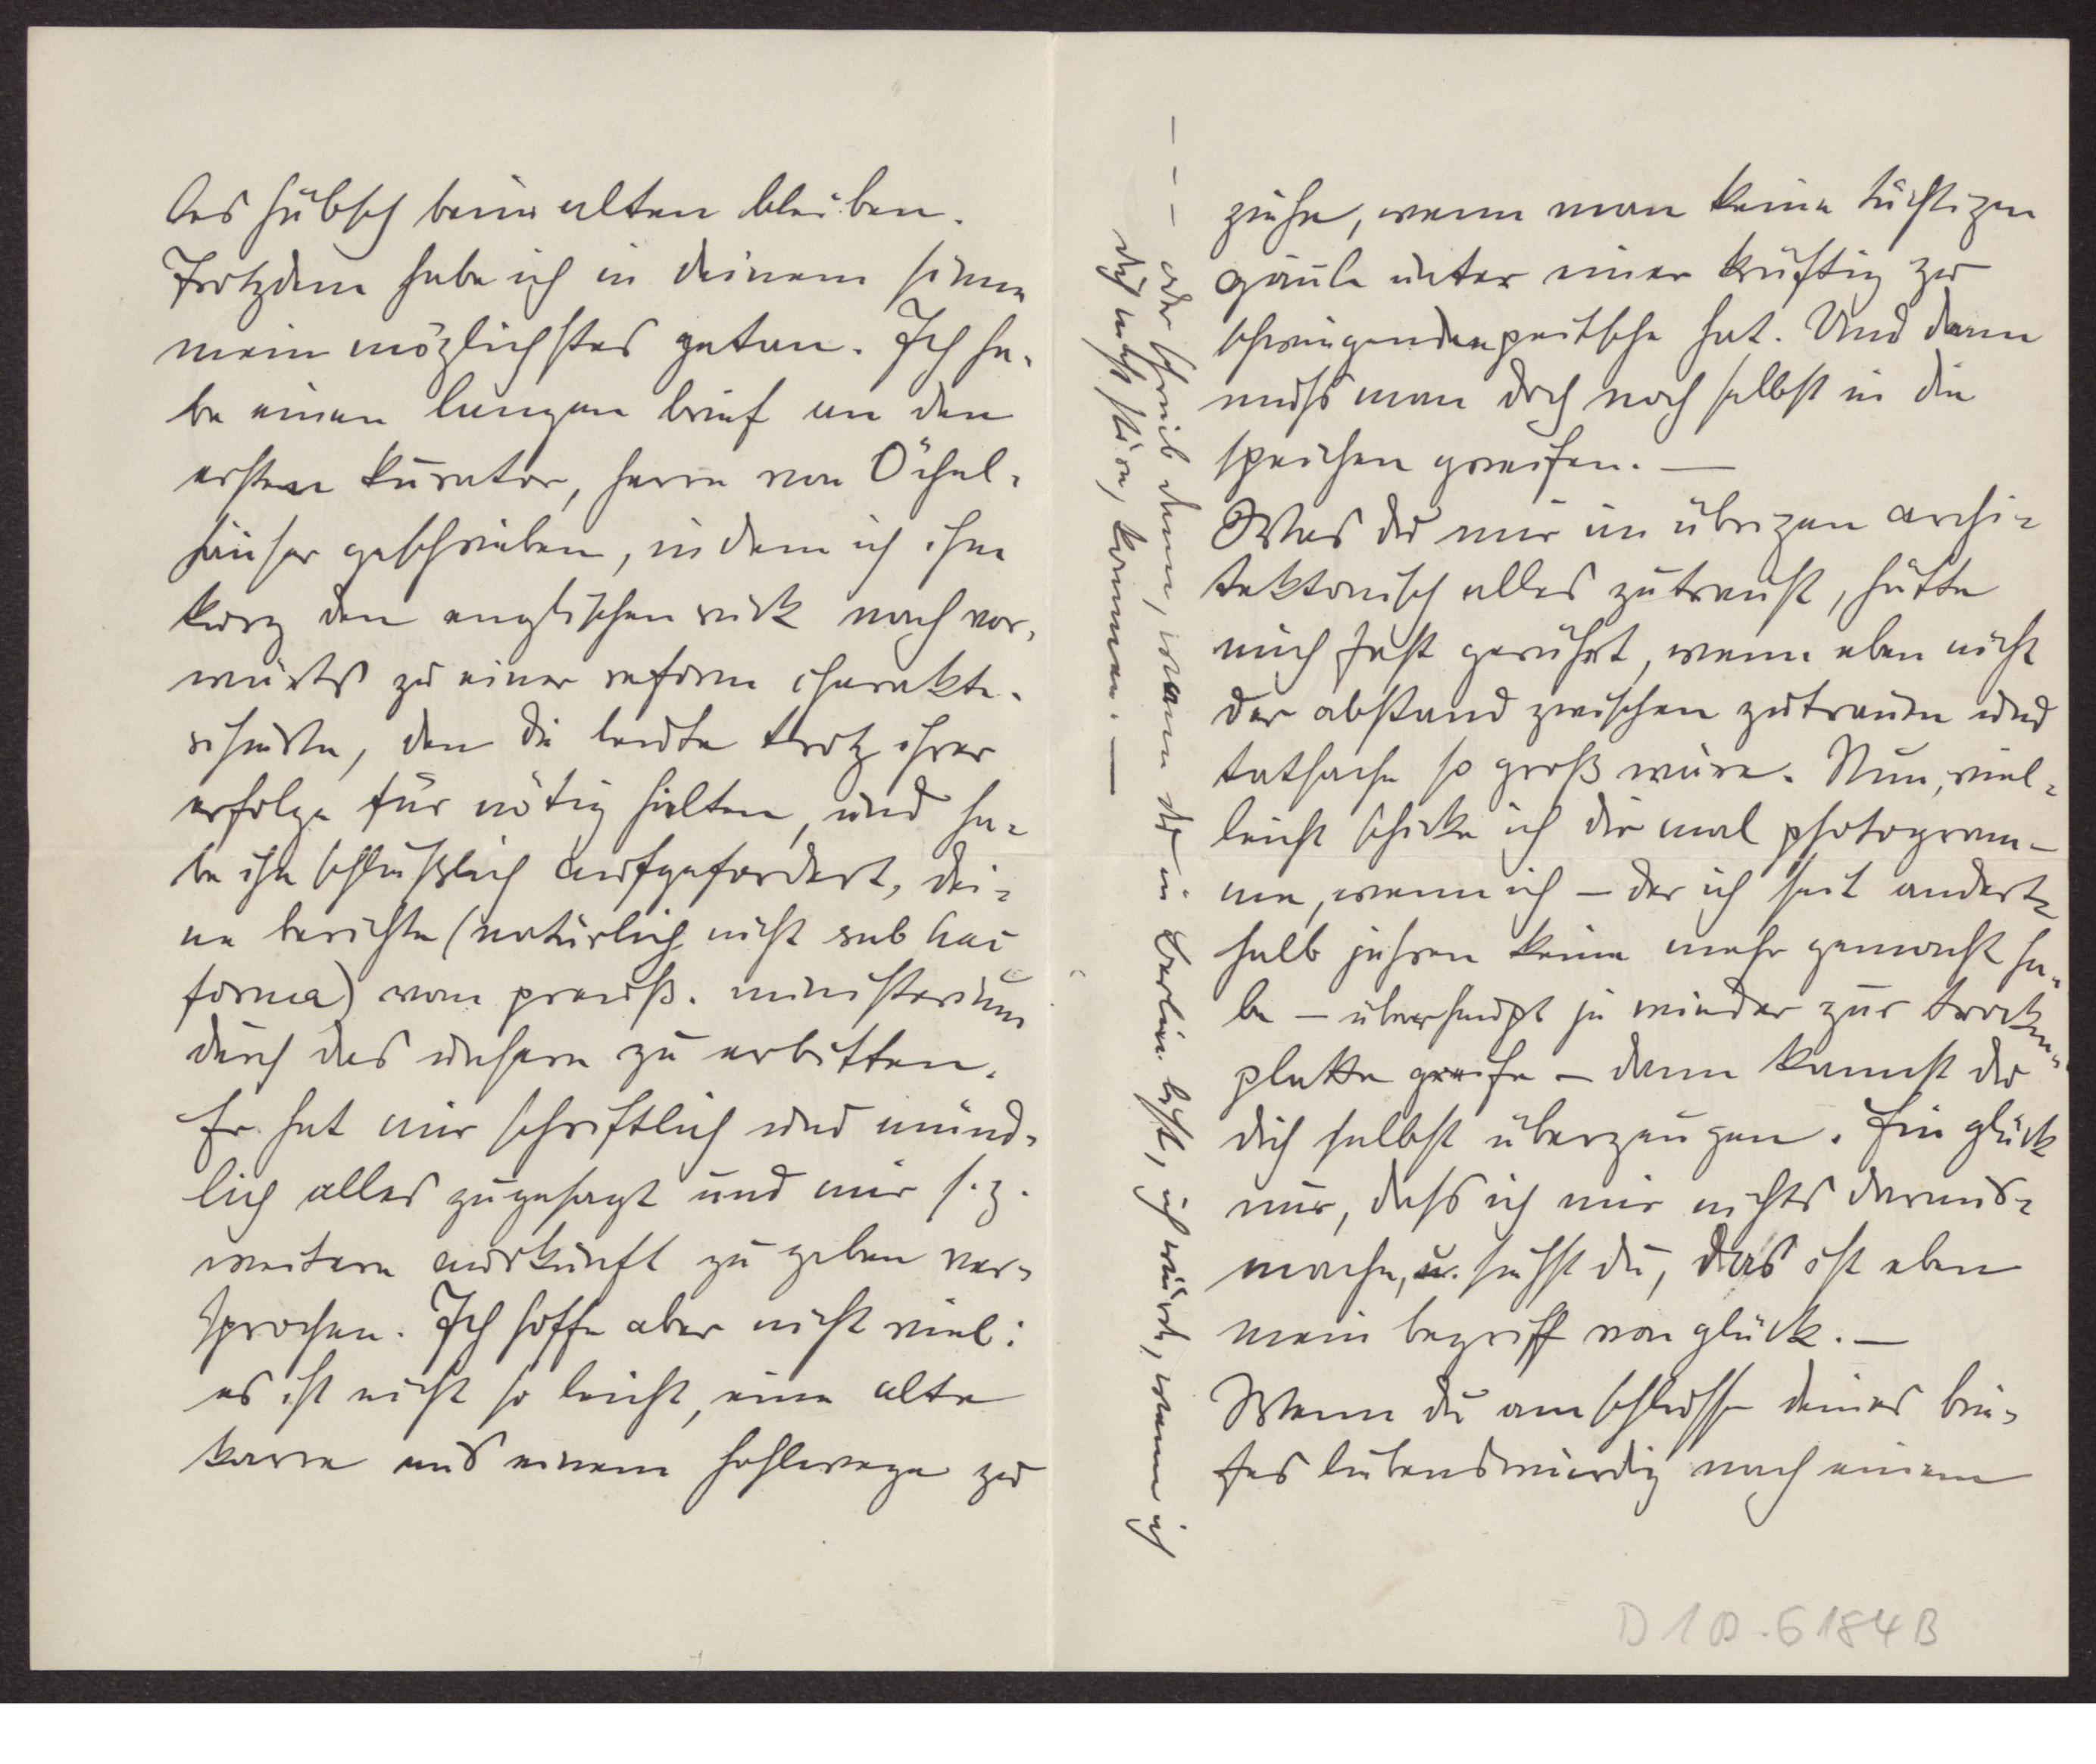 les hübsch beim alten bleiben.
Trotzdem habe ich in deinem sinne
mein möglichstes getan. Ich ha-
be einen langen brief an den
ersten kurator, herrn von Öchel-
häuser geschrieben, in dem ich ihm
kurz den englischen ruck nach vor-
wärts zu einer reform charakte-
risierte, den die leute trotz ihrer
erfolge für nötig hielten, und ha-
be ihn schließlich aufgefordert, dei-
ne berichte (natürlich nicht sub hac
forma) vom preuß. ministerium
durch das unsere zu erbitten.
Er hat mir schriftlich und münd-
lich alles zugesagt und mir s. z.
weitere auskunft zu geben ver-
sprochen. Ich hoffe aber nicht viel:
es ist nicht so leicht, eine alte
karre aus einem hohlwege zu
ziehn, wenn man keine tüchtigen
gäule unter einer kräftig zu
schwingenden peitsche hat. Und dann
muss man doch noch selbst in die
speichen greifen. —
Was du mir im übrigen archi-
tektonisch alles zutraust, hätte
mich fast gerührt, wenn eben nicht
der abstand zwischen zutrauen und
tatsache so groß wäre. Nun, viel-
leicht schicke ich dir mal photogram-
me, wenn ich – der ich seit andert-
halb jahren keine mehr gemacht ha-
be – überhaupt je wieder zur trocken-
platte greife – dann kannst du
dich selbst überzeugen. Ein glück
nur, dass ich mir nichts daraus-
mache, u. siehst du, das ist eben
mein begriff von glück. —
Wenn du am schlusse deines brie-
fes liebenswürdig nach einem
– – – oder schreib denn, wann du in Berlin bist, ich würde, wenn ich
dich nicht störe, kommen. —
D 1 D. 6184 B